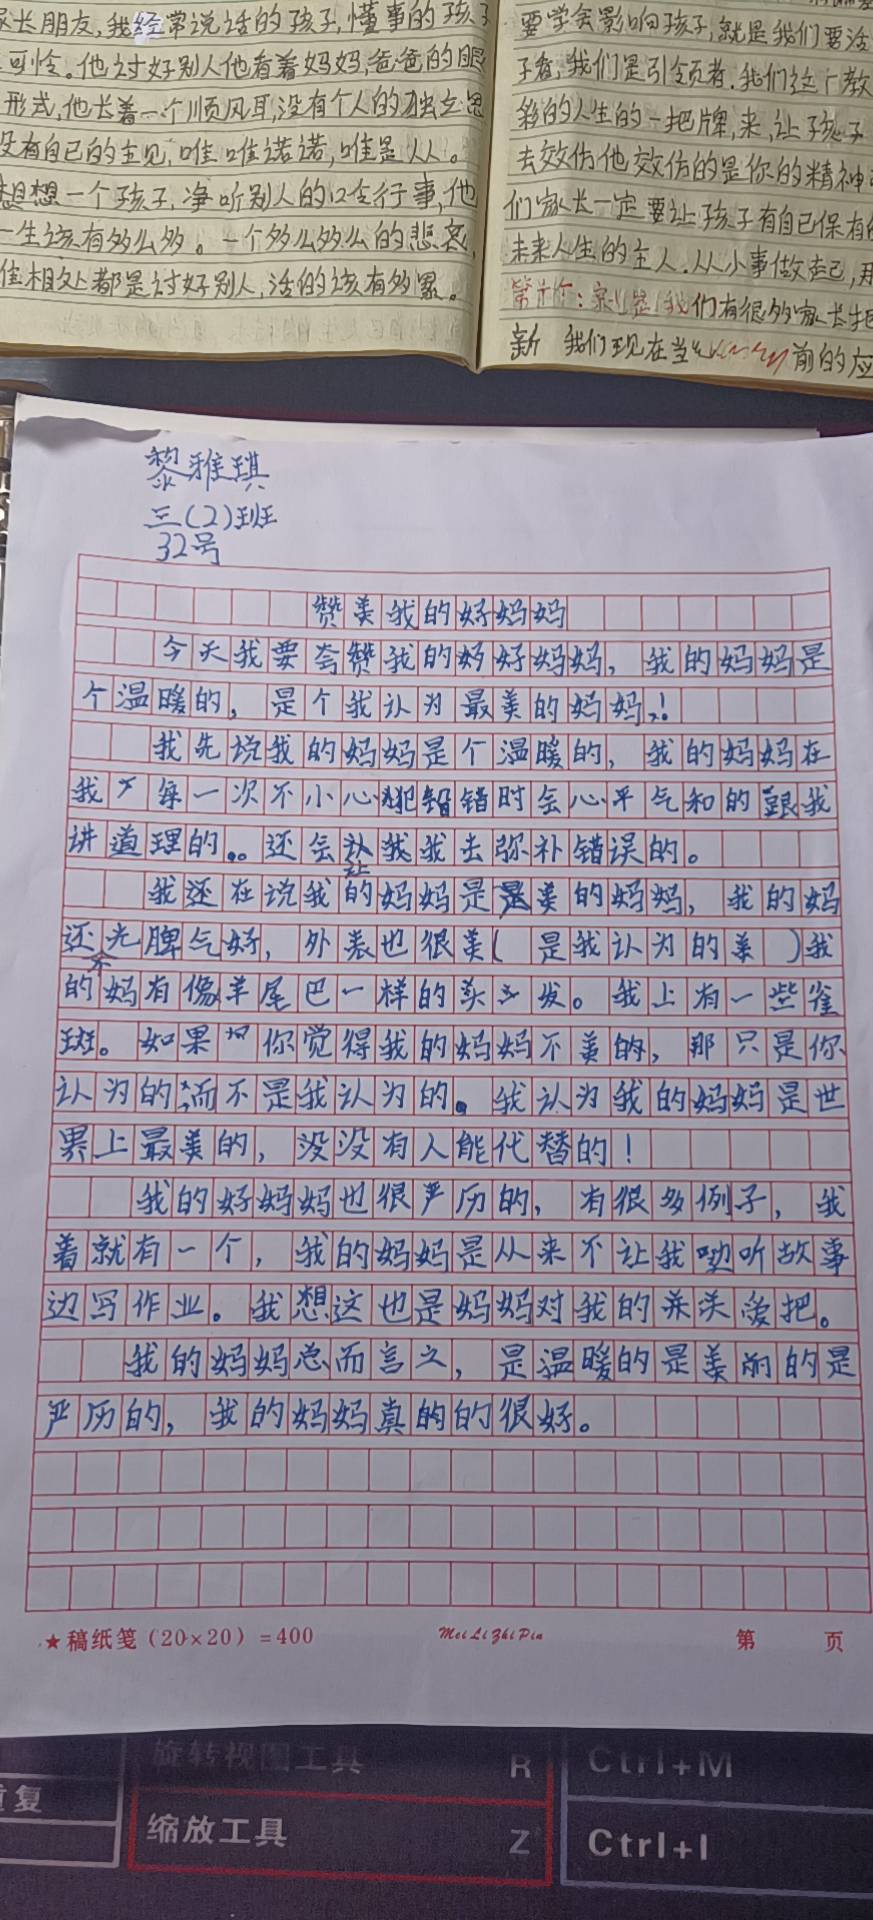 家长朋友,我经常说话的孩子,懂事的孩子
可怜。他讨好别人他看着妈妈,爸爸的眼
形式,他长着一个顺风耳,没有个人的独立思
没有自己的主见,唯唯诺诺,唯是从人。
想想一个孩子,净听别人的口令行事,他
一生该有多么多。一个多么多么的悲哀,
相处都是讨好别人,活的该有多累。
要学会影响孩子,就是我们要活
子看,我们是引领者.我们这个教
的人生的一把牌,来,让孩子
去效仿他效仿的是你的精神
们家长一定要让孩子有自己保有的
未来人生的主人.从小事做起,用
我们有很多家长把
新 我们现在当 前的应
黎雅琪
三(2)班
32号
赞美我的好妈妈
今天我要夸赞我的妈好妈妈,我的妈妈是
个温暖的,是个我认为最美的妈妈!
我先说我的妈妈是个温暖的,我的妈妈在
我 每一次不小心犯错时会心平气和的跟我
讲道理的。还会让我我去弥补错误的。
我还在说我的妈妈是最美的妈妈,我的妈
还不光脾气好,外表也很美(是我认为的美)我
的妈有像羊尾巴一样的头发。我上有一些雀
斑。如果 你觉得我的妈妈不美的,那只是你
认为的,而不是我认为的。我认为我的妈妈是世
界上最美的,没没有人能代替的!
我的好妈妈也很严历的,有很多例子,我
着就有一个,我的妈妈是从来不让我 听故事
边写作业。我想这也是妈妈对我的 关爱把。
我的妈妈总而言之,是温暖的是美丽的是
严历的,我的妈妈真的的很好。
★稿纸笺(20×20)=400
Mei Li Zhi Pin
第 页
旋转视图工具 R
Ctrl+M
重复
缩放工具 Z
Ctrl+I